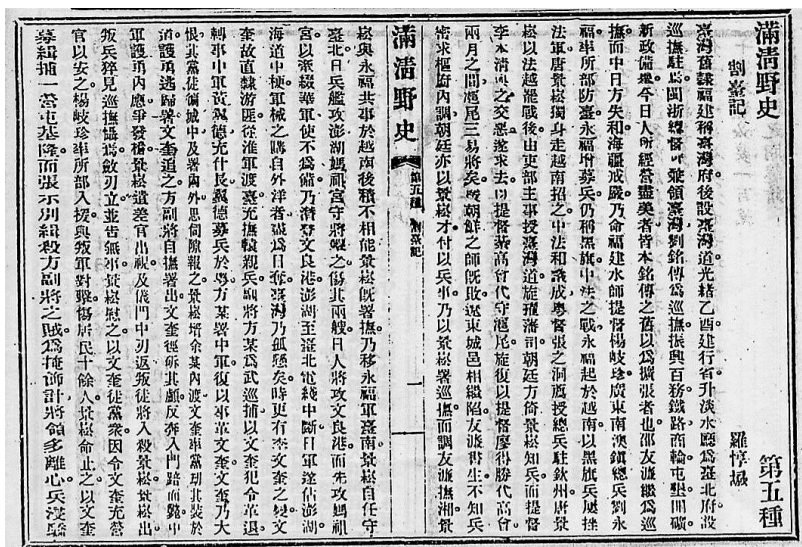 滿清野史　第五種
割臺記　羅惇曧
臺灣舊隸福建稱臺灣府後設臺灣道光緒乙酉建行省升淡水廳爲臺北府設
巡撫駐焉閩浙總督兼領臺灣劉銘傳爲巡撫振興百務鐵路商輪屯墾開礦
新政備舉今日人所經營盡美者皆本銘傳之舊以爲擴張者也邵友濂繼爲巡
撫而中日方失和海疆戒嚴乃命福建水師提督楊岐珍廣東南澳鎭總兵劉永
福率所部防臺永福增募兵仍稱黑旗中法之戰永福起於越南以黑旗兵屢挫
法軍唐景崧獨身走越南招之中法和議成粵督張之洞薦授總兵駐欽州唐景
崧以法越罷戰後由吏部主事授臺灣道旋擢藩司朝廷方倚景崧知兵而提督
李本淸與之交惡遂求去以提督綦高會代守滬尾旋復以提督廖得勝代高會
兩月之間滬尾三易將矣援朝鮮之師旣敗遼東城邑相繼陷友濂書生不知兵
密求樞府內調朝廷亦以景崧才付以兵事乃以景崧署巡撫而調友濂撫湘景
滿清野史　第五種　割臺記　一
崧與永福共事於越南後積不相能景崧旣署撫乃移永福軍臺南景崧自任守
臺北日兵艦攻澎湖媽祖宮守將擊之傷其兩艘日人將攻文良港而先攻媽祖
宮以牽綴華軍使不爲備乃潛登文良港澎湖至臺北電綫中斷日軍遂佔澎湖
海道中梗軍械之購自外洋者輒爲日奪臺灣乃孤懸矣時更有李文奎之變文
奎故直隸游匪從淮軍渡臺充撫轅親兵副將方某爲武巡捕以文奎犯令革退
轉事中軍黃翼德充什長翼德募兵於粵方某署中軍復以事革文奎文奎乃大
恨其黨徒徧城中及署內外思伺隙報之景崧壻余某內渡文奎率黨刼其裝於
道護勇逃歸署文奎追之方副將自撫署出文奎徑斫其顱反奔入門踣而斃中
軍護勇內應爭發槍景崧遣差官出視及儀門中刃返叛徒將入殺景崧景崧出
叛兵猝見巡撫懾爲斂刃立並告無事景崧慰之以文奎徒黨衆因令文奎充營
官以安之楊岐珍率所部入援與叛軍對擊傷居民十餘人景崧命止之以文奎
募緝捕一營屯基隆而張示別緝殺方副將之賊爲掩飾計將領多離心兵浸驕